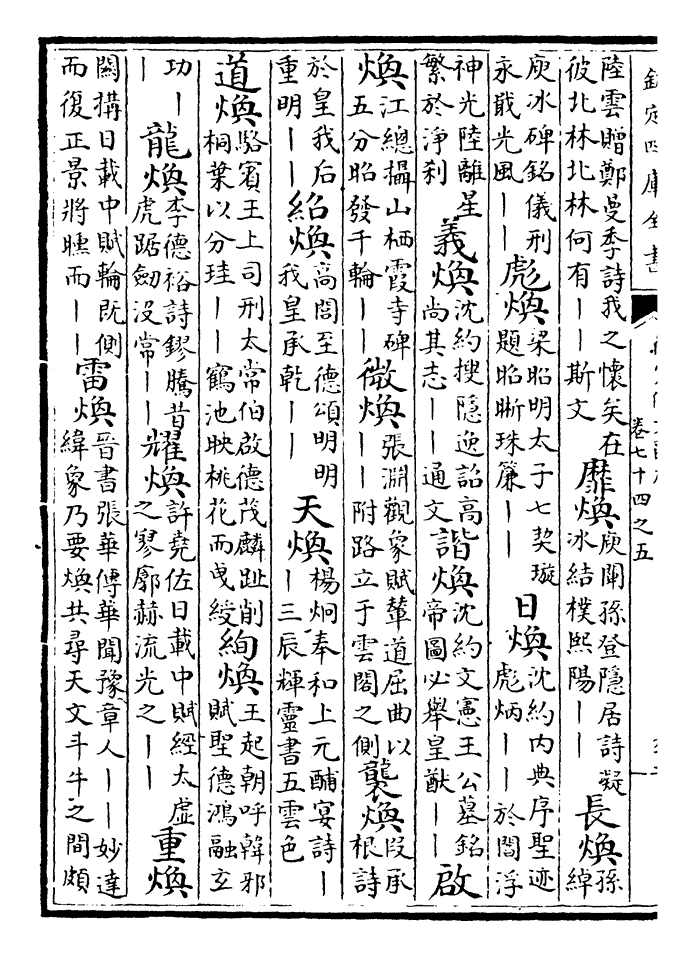 欽定四庫全書
卷七十四之五
陸雲贈鄭曼季詩我之懷矣在
彼北林北林何有丨丨斯文
靡煥
庾闡孫登隱居詩凝
冰結樸熙陽丨丨
長煥
孫
綽
庾冰碑銘儀刑
永戢光風丨丨
彪煥
梁昭明太子七契璇
題昭晣珠簾丨丨
日煥
沈約内典序聖迹
彪炳丨丨於閻浮
神光陸離星
繁於淨刹
義煥
沈約搜隱逸詔高
尚其志丨丨通文
諧煥
沈約文憲王公墓銘
帝圖必舉皇猷丨丨
啟
煥
江總攝山栖霞寺碑
五分昭發千輪丨丨
微煥
張淵觀象賦輦道屈曲以
丨丨附路立于雲閣之側
襲煥
段承
根詩
於皇我后
重明丨丨
紹煥
高閭至德頌明明
我皇承乾丨丨
天煥
楊炯奉和上元酺宴詩丨
丨三辰輝靈書五雲色
道煥
駱賓王上司刑太常伯啟德茂麟趾削
桐葉以分珪丨丨鶴池映桃花而曳綬
絢煥
王起朝呼韓邪
賦聖德鴻融立
功丨
丨
龍煥
李德裕詩鏐騰昔
虎踞劒没常丨丨
耀煥
許堯佐日載中賦經太虛
之寥廓赫流光之丨丨
重煥
闕搆日載中賦輪既側
而復正景將曛而丨丨
雷煥
晉書張華傳華聞豫章人丨丨妙達
緯象乃要煥共尋天文斗牛之間頗